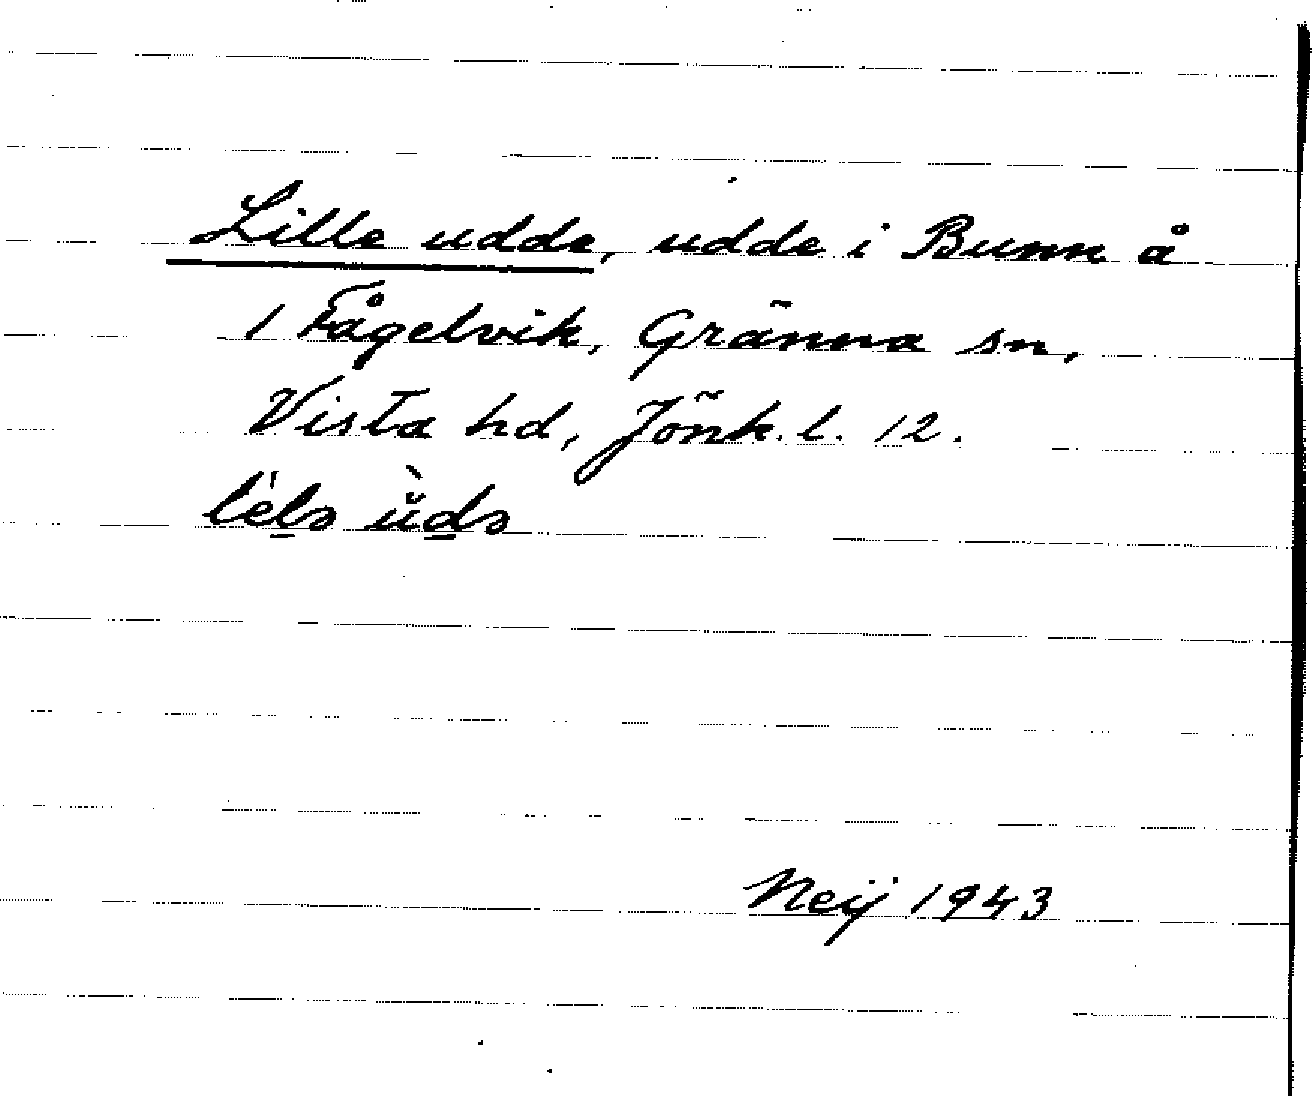 Lille udde, udde i Bunn å
1 Fågelvik, Gränna sn,
Vista hd, Jönk. l. 12.
Neij 1943